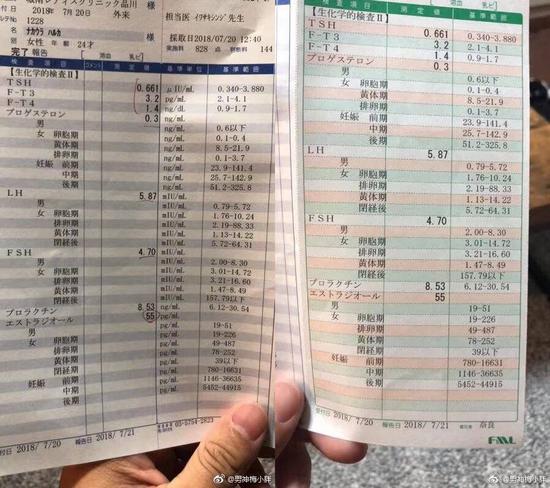 レディスクリニック品川 様
付日 2018年 7月20日 外来
1228
ナカウラ ハルカ 様
女性 年齢 24才
担当医 イワサキシンジ先生
採取日2018/07/20 12:40
実施料 828点 判断料 144
完了報告 溶血 乳ビ
検査項目 コメント 測定値 基準単位 基準範囲
【生化学的検査Ⅱ】
TSH 0.661 μIU/mL 0.340-3.880
F-T3 3.2 pg/mL 2.1-4.1
F-T4 1.4 ng/dL 0.9-1.7
プロゲステロン 0.3 ng/mL
男 ng/mL 0.6以下
女 卵胞期 ng/mL 0.1-0.4
黄体期 ng/mL 8.5-21.9
排卵期 ng/mL 0.1-3.7
妊娠 前期 ng/mL 23.9-141.4
中期 ng/mL 25.7-142.9
後期 ng/mL 51.2-325.8
LH 5.87 mIU/mL
男 mIU/mL 0.79-5.72
女 卵胞期 mIU/mL 1.76-10.24
排卵期 mIU/mL 2.19-88.33
黄体期 mIU/mL 1.13-14.22
閉経後 mIU/mL 5.72-64.31
FSH 4.70 mIU/mL
男 mIU/mL 2.00-8.30
女 卵胞期 mIU/mL 3.01-14.72
排卵期 mIU/mL 3.21-16.60
黄体期 mIU/mL 1.47-8.49
閉経後 mIU/mL 157.79以下
プロラクチン 8.53 ng/mL 6.12-30.54
エストラジオール 55 pg/mL
男 pg/mL 19-51
女 卵胞期 pg/mL 19-226
排卵期 pg/mL 49-487
黄体期 pg/mL 78-252
閉経後 pg/mL 39以下
妊娠 前期 pg/mL 780-16631
中期 pg/mL 1146-36635
後期 pg/mL 5452-44915
03-5754-2823
付日 2018/ 7/20 報告日 2018/ 7/21
検査項目 測定値 基準範囲
溶血 乳ビ
【生化学的検査Ⅱ】
TSH 0.661 0.340-3.880
F-T3 3.2 2.1-4.1
F-T4 1.4 0.9-1.7
プロゲステロン 0.3
男 0.6以下
女 卵胞期 0.1-0.4
黄体期 8.5-21.9
排卵期 0.1-3.7
妊娠 前期 23.9-141.4
中期 25.7-142.9
後期 51.2-325.8
LH 5.87
男 0.79-5.72
女 卵胞期 1.76-10.24
排卵期 2.19-88.33
黄体期 1.13-14.22
閉経後 5.72-64.31
FSH 4.70
男 2.00-8.30
女 卵胞期 3.01-14.72
排卵期 3.21-16.60
黄体期 1.47-8.49
閉経後 157.79以下
プロラクチン 8.53 6.12-30.54
エストラジオール 55
男 19-51
女 卵胞期 19-226
排卵期 49-487
黄体期 78-252
閉経後 39以下
妊娠 前期 780-16631
中期 1146-36635
後期 5452-44915
受付日 2018/ 7/20 報告日 2018/ 7/21 奈良
FML
@男神梅小胖
@男神梅小胖